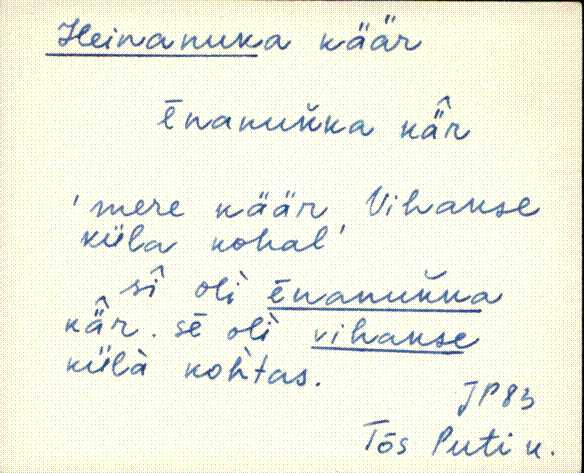 Heinanuka käär
ēnanuk̆ka kä̂r
'mere käär Vihakse
küla kohal'
sî oli ̀ēnanuk̆ka
kä̂r. sē oli ̀vihakse
külà koh̀tas.
JP83
Tõs Puti k.